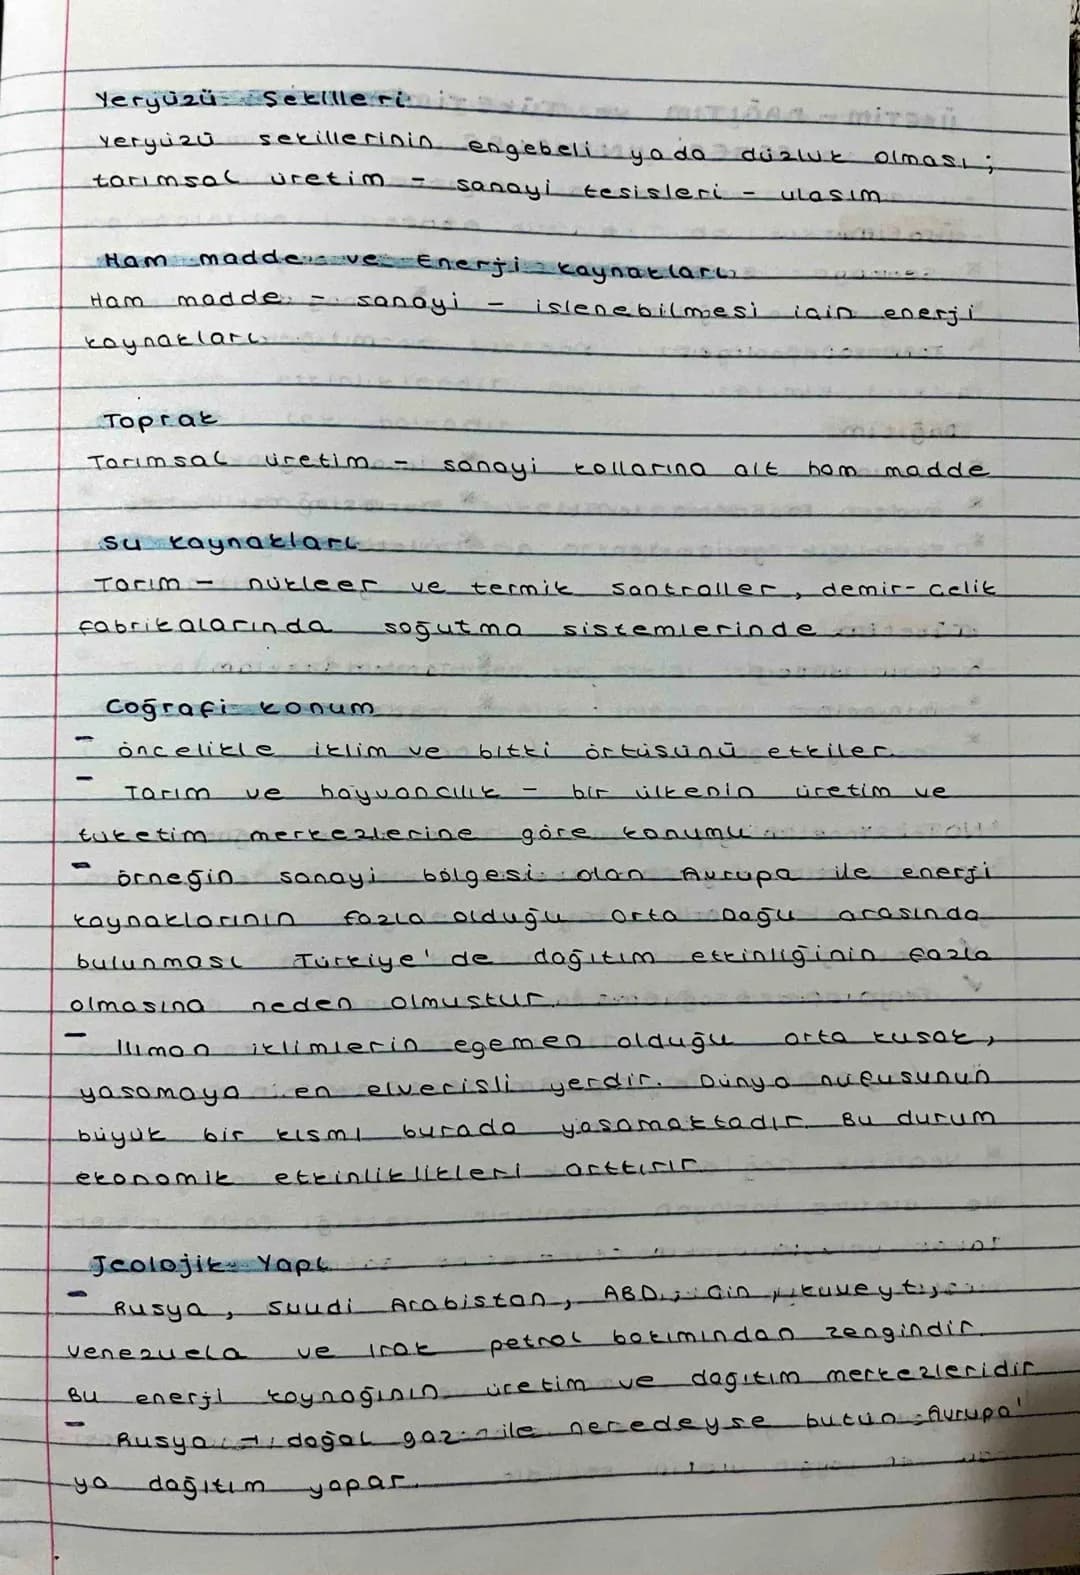 Yeryüzü Sekilleri
Yeryüzü sekillerinin engebeli yada düzluk olması;
tarımsal üretim - sanayi tesisleri - ulasım
Ham madde ve Enerji kaynakları
Ham madde - sanayi - islenebilmesi icin enerji
kaynakları
Toprak
Tarımsal üretim - sanayi kollarına ait ham madde
Su kaynakları
Tarım - nükleer ve termik santraller, demir-celik
fabrikalarında soğutma sistemlerinde
Coğrafi konum
- öncelikle iklim ve bitki örtüsünü etkiler.
- Tarım ve hayvancılık - bir ülkenin üretim ve
tüketim merkezlerine göre konumu
- örneğin sanayi bölgesi olan Avrupa ile enerji
kaynaklarının fazla olduğu Orta Doğu arasında
bulunması Türkiye'de dağıtım etkinliğinin fazla
olmasına neden olmustur.
- Ilıman iklimlerin egemen olduğu orta kusak,
yasamaya en elverisli yerdir. Dünya nüfusunun
büyük bir kısmı burada yasamaktadır. Bu durum
ekonomik etkinliklikleri arttırır.
Jeolojik Yapı
- Rusya, Suudi Arabistan, ABD, Cin, kuveyt,
Venezuela ve Irak petrol bakımından zengindir.
Bu enerji kaynağının üretim ve dagıtım merkezleridir
- Rusya → doğal gaz ile neredeyse butün Avrupa'
ya dağıtım yapar.